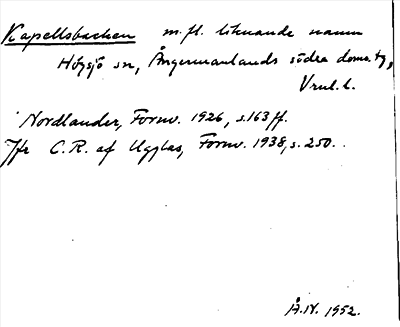 Kapellsbacken m.fl. liknande namn
Högsjö sn, Ångermanlands södra doms. tg,
Vnl. l.
Nordlander, Fornv. 1926, s. 163 ff.
Jfr C. R. af Ugglas, Fornv. 1938, s. 250.
Å.N. 1952.